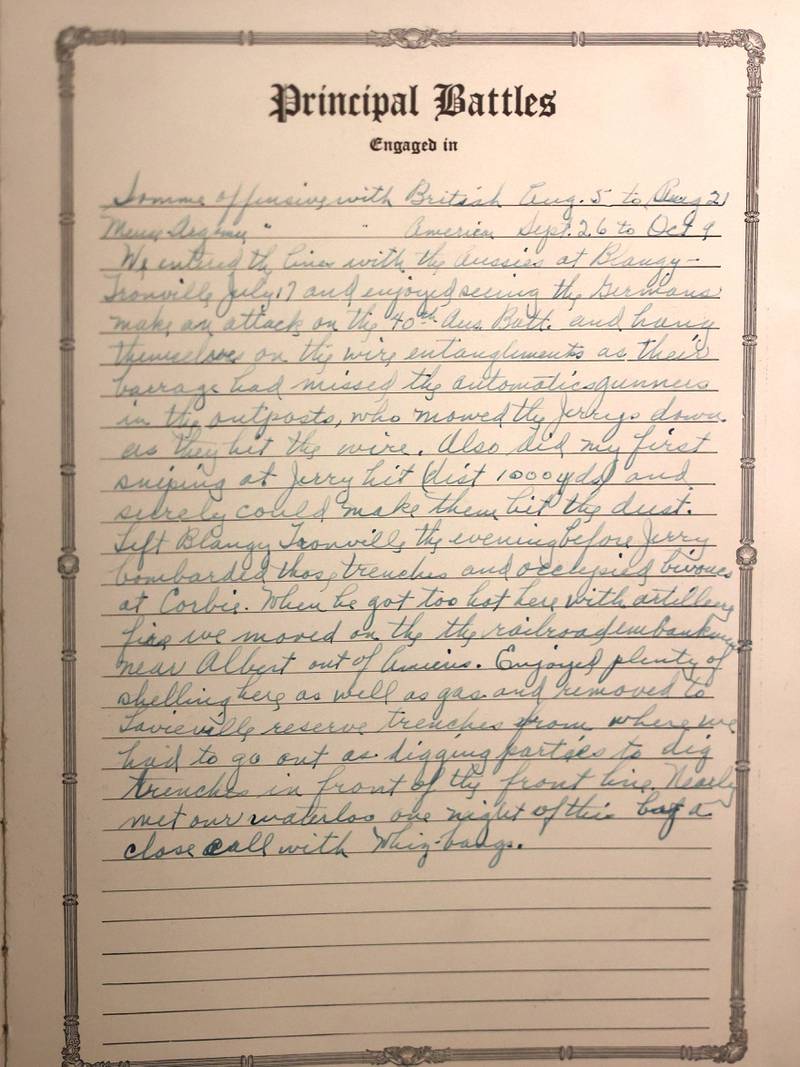 Principal Battles
Engaged in
Somme offensive with British Aug. 5 to Aug 21
Meuse Argonne " " American Sept. 26 to Oct 9
We entered the lines with the Aussies at Blangy-
Tronville July 17 and enjoyed seeing the Germans
make an attack on the 40th Aus. Batt. and hang
themselves on the wire entanglements as their
barrage had missed the automatics gunners
in the outposts, who mowed the Jerrys down
as they hit the wire. Also did my first
sniping at Jerry hit (dist 1000 yds) and
surely could make them hit the dust.
Left Blangy Tronville the evening before Jerry
bombarded those trenches and occupied bivouacs
at Corbie. When he got too hot here with artillery
fire we moved on the the railroad embankment
near Albert out of Amiens. Enjoyed plenty of
shelling here as well as gas and removed to
Lavieville reserve trenches from where we
had to go out as digging parties to dig
trenches in front of the front line. Nearly
met our waterloo one night of this a
close call with Whiz-bangs.